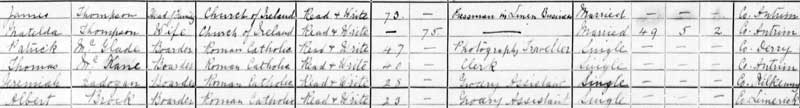 James Thompson Head Family Church of Ireland Read & Write 73 — Passman in Linen Business Married — — — Co. Antrim
Matilda Thompson Wife Church of Ireland Read & Write — 75 — Married 49 5 2 Co. Antrim
Patrick McGlade Boarder Roman Catholic Read & Write 47 — Photography Traveller Single — — — Co. Derry
Thomas McKane Boarder Roman Catholic Read & Write 40 — Clerk Single — — — Co. Antrim
Jeremiah Boarder Roman Catholic Read & Write 28 — Grocery Assistant Single — — — Co. Kilkenny
Albert Brock Boarder Roman Catholic Read & Write 23 — Grocery Assistant Single — — — Co. Limerick